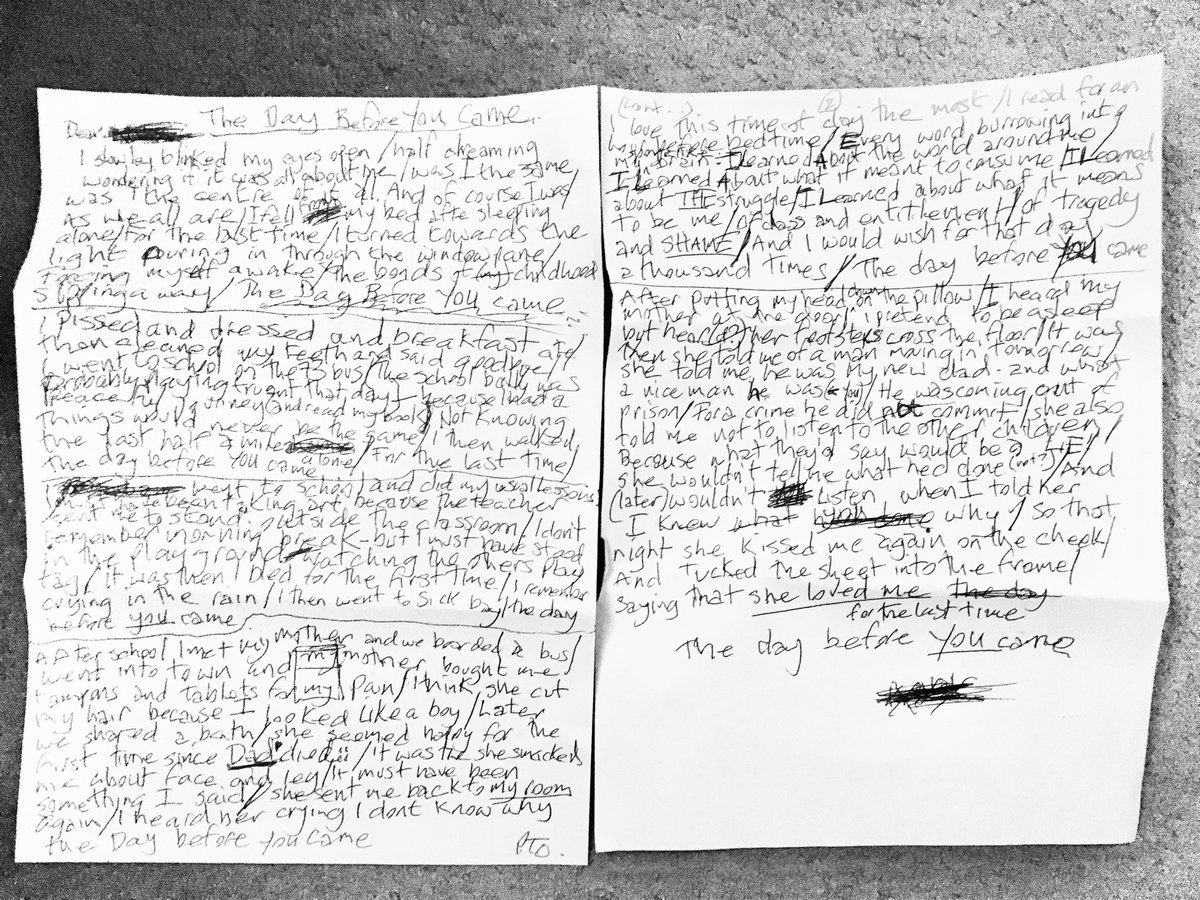 The Day Before You Came.
Dear
I slowly blinked my eyes open / half dreaming
wondering if it was all about me / was I the same
was I the centre of it all. And of course I was /
As we all are / I fell my bed after sleeping
alone / For the last time / I turned towards the
light Pouring in through the windowpane /
Forcing myself awake / the bonds of my childhood
Slipping away / The Day Before You came
I Pissed and dressed and breakfast ate /
then cleaned my teeth and said goodbye /
I went to school on the 73 bus / the school bully was
Probably playing truant that day / because I had a
Peaceful journey (and read my book) Not knowing
things would never be the same / I then walked
the last half a mile alone / For the last time /
the day before you came
I went to school and did my usual lessons
must have been taking art, because the teacher
sent me to stand outside the classroom / I don't
remember morning break - but I must have stood
in the playground watching the others play
tag / it was then I bled for the first time / I remember
crying in the rain / I then went to sick bay / the day
before you came
After school / I met my mother and we boarded a bus /
went into town and my mother bought me
tampons and tablets for my pain / I think she cut
my hair because I looked like a boy / Later
we shared a bath / she seemed happy for the
first time since Dad died / it was then she smacked
me about face and leg / it must have been
something I said / she sent me back to my room
again / I heard her crying I dont know why
the Day before you came
PTO.
(cont...) (2)
I love this time of day the most / I read for an
hour before bedtime / Every word burrowing into
my brain I learned About the world around me
I Learned About what it meant to consume / I Learned
about THE struggle / I Learned about what it means
to be me / of class and entitlement / of tragedy
and SHAME / And I would wish for that day
a thousand times / The day before you came
After putting my head down on the pillow / I heard my
mother at the door / I pretend to be asleep
but hear (?) her footsteps cross the floor / It was
then she told me of a man moving in tomorrow /
she told me he was my new dad - and what
a nice man he was (you) / He was coming out of
prison / For a crime he did not commit / she also
told me not to listen to the other children /
Because what they'd say would be a LIE /
she wouldn't tell me what he'd done / And
(later) wouldn't Listen when I told her
I knew what you done why / so that
night she kissed me again on the cheek /
And tucked the sheet into the frame /
saying that she loved me The day
for the last time
The day before you came